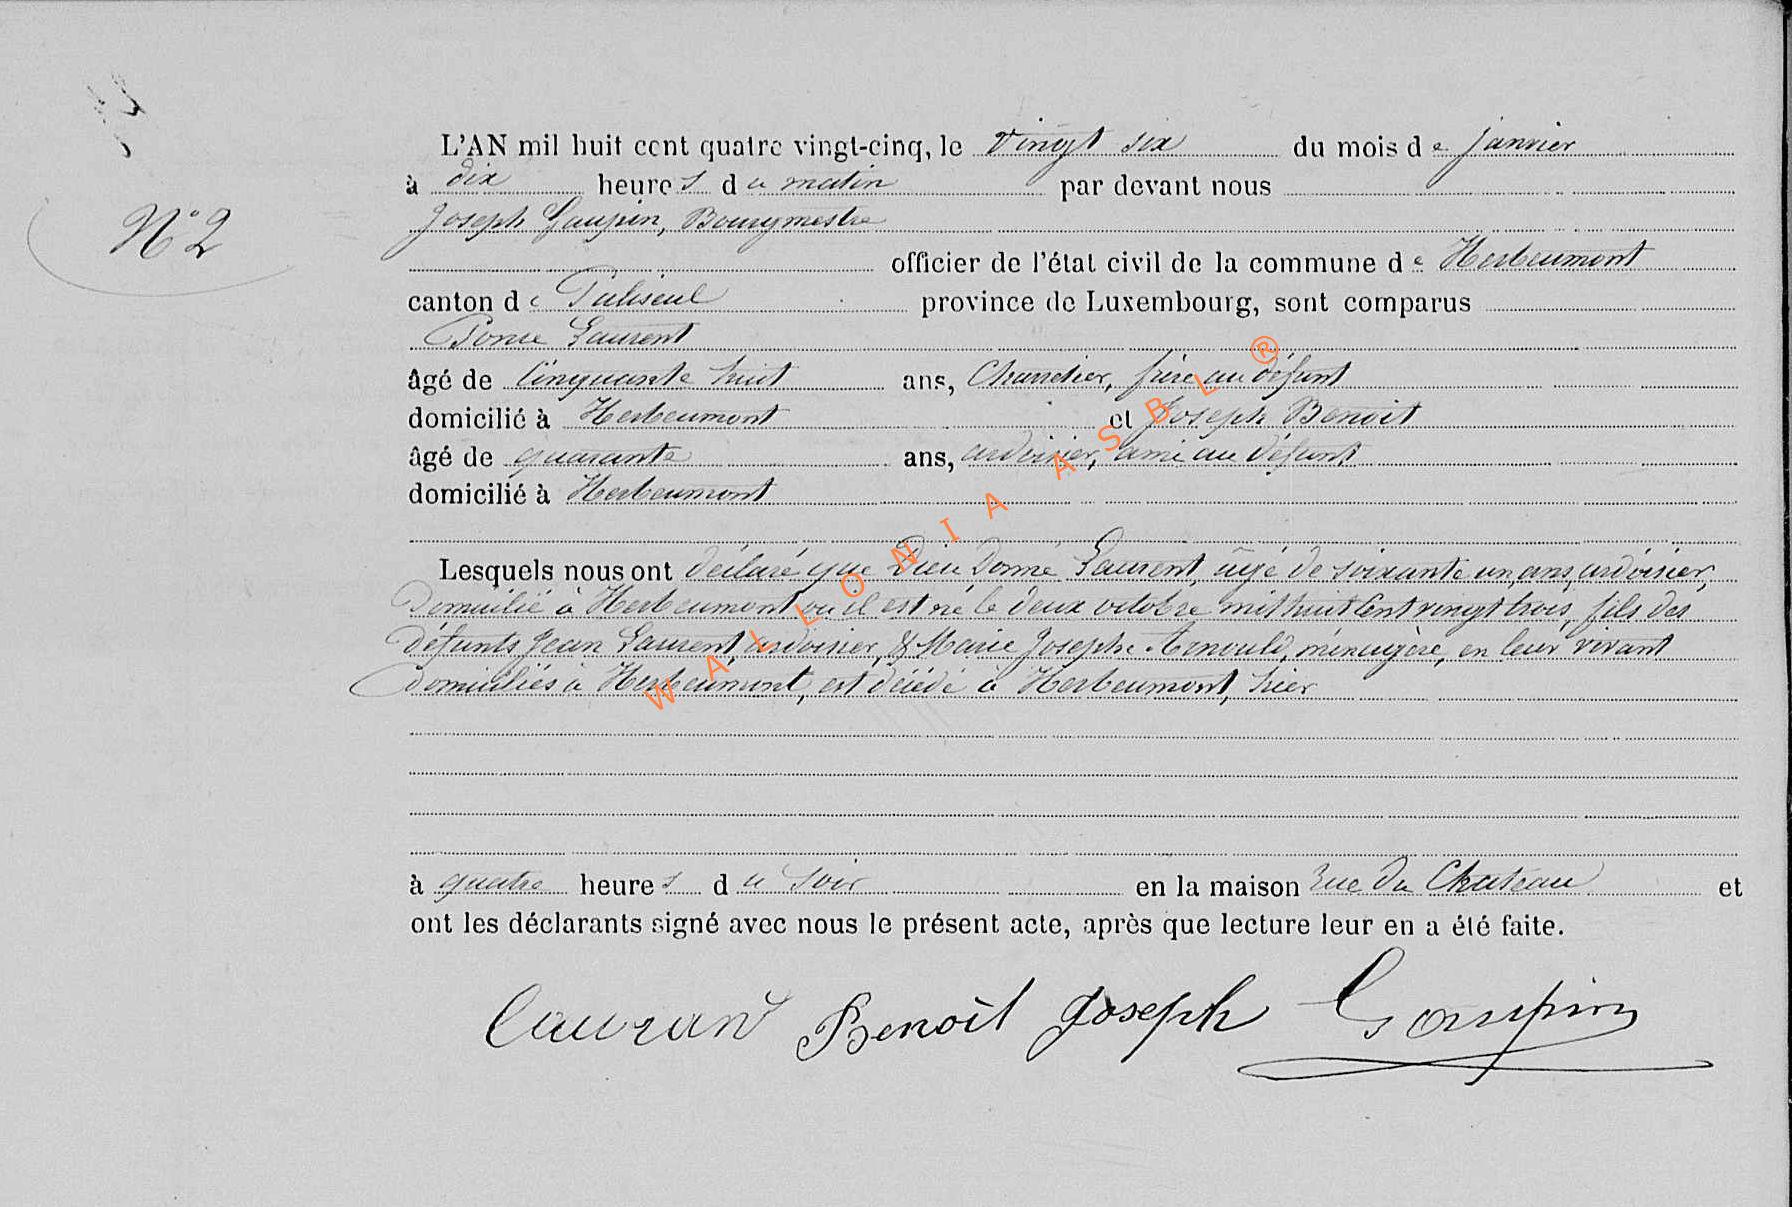 L'AN mil huit cent quatre vingt-cinq, le vingt six du mois de janvier
à dix heures du matin par devant nous
N° 2
Joseph Goupin, Bourgmestre
officier de l'état civil de la commune de Herbeumont
canton de Paliseul province de Luxembourg, sont comparus
Ponce Laurent
âgé de Cinquante huit ans, Charretier, frère au défunt
domicilié à Herbeumont et Joseph Benoit
âgé de quarante ans, ardoisier, ami au défunt
domicilié à Herbeumont
Lesquels nous ont déclaré que Dieu Donné Laurent, âgé de soixante un ans, ardoisier,
domicilié à Herbeumont où il est né le deux octobre mil huit cent vingt trois, fils des
défunts Jean Laurent, ardoisier, & Marie Josephe Arnould, ménagère, en leur vivant
domiciliés à Herbeumont, est décédé à Herbeumont, hier
à quatre heures du soir en la maison rue du Château et
ont les déclarants signé avec nous le présent acte, après que lecture leur en a été faite.
Lauran Benoit Joseph Goupin
WALLONIA ASBL ®